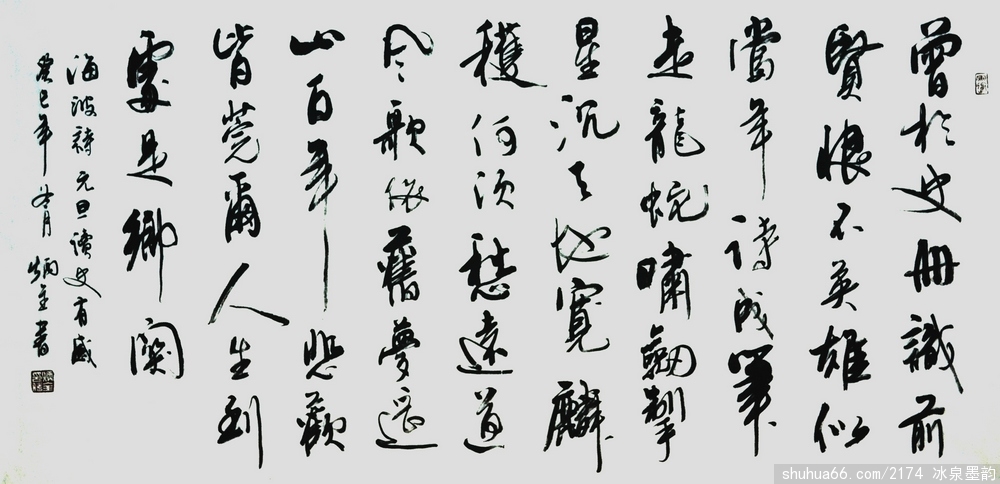 曾於史冊識前
賢恨不英雄似
當年詩成筆
走龍蛇嘯劍掣
星沉天地寬麟
穫何須愁遠道
鳳歌依舊夢遥
山百年悲歡
皆莞爾人生到
處是鄉關
海波詩元旦讀史有感
癸巳年冬月炳書
shuhua66.com/2174 冰泉墨韵